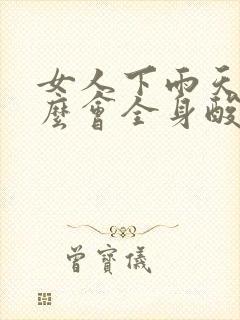 女人下雨天
麼會全身酸
曾寶儀